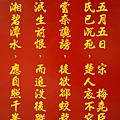 五月五日 宋 梅堯臣
氏已沉死，楚人哀不
嘗奈讒謗，徒欲卻蛟
泯生前恨，而追沒後
湘碧潭水，應自照千